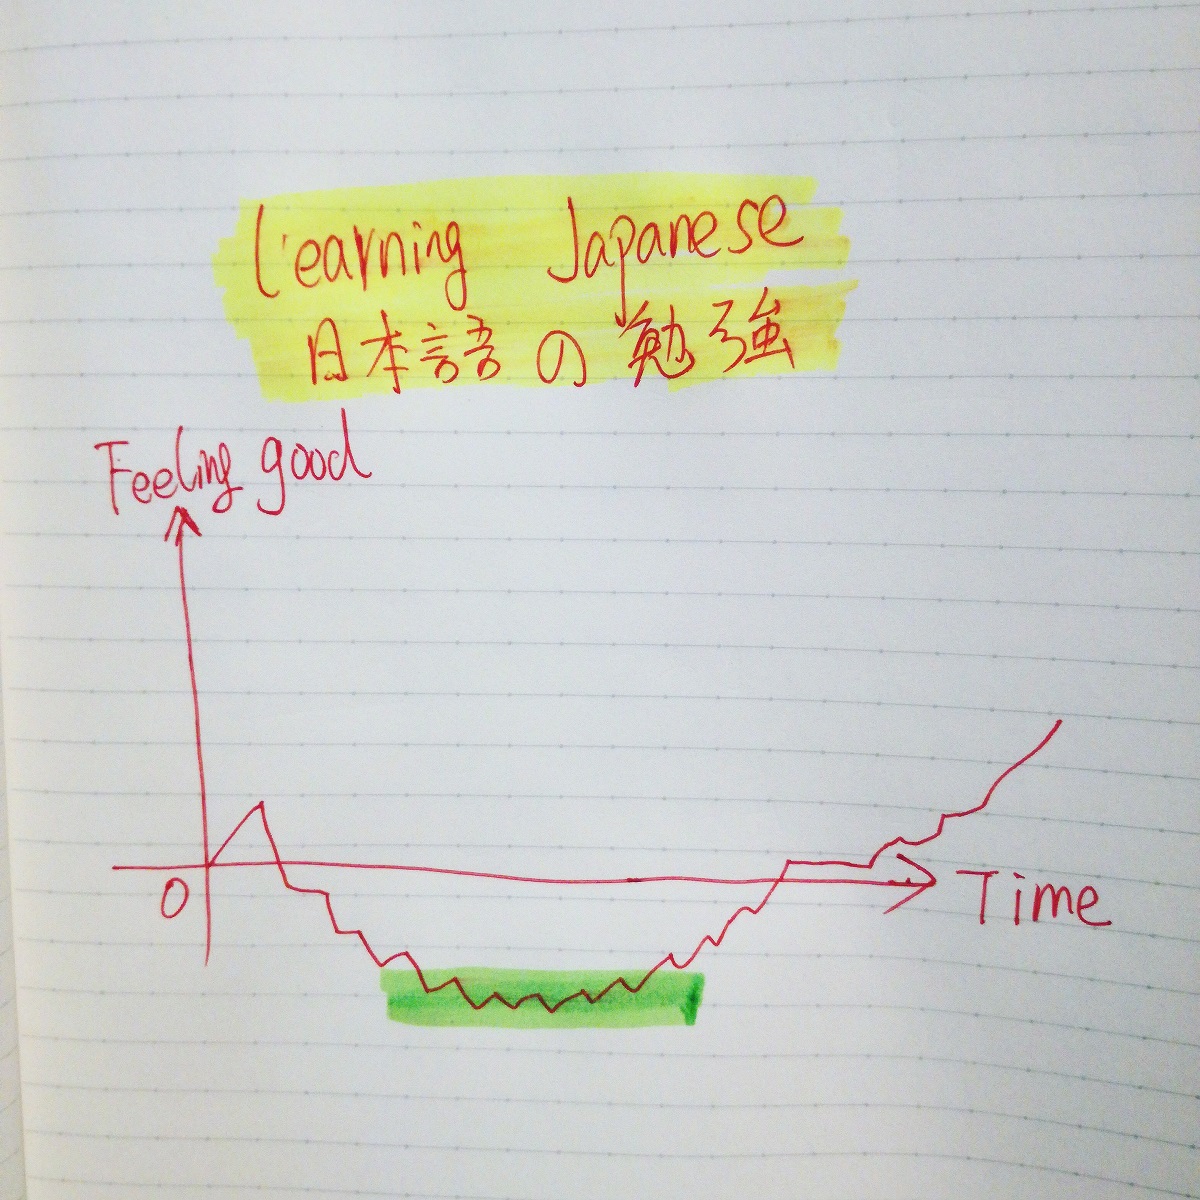 Learning Japanese
日本語の勉強
Feeling good
0
Time